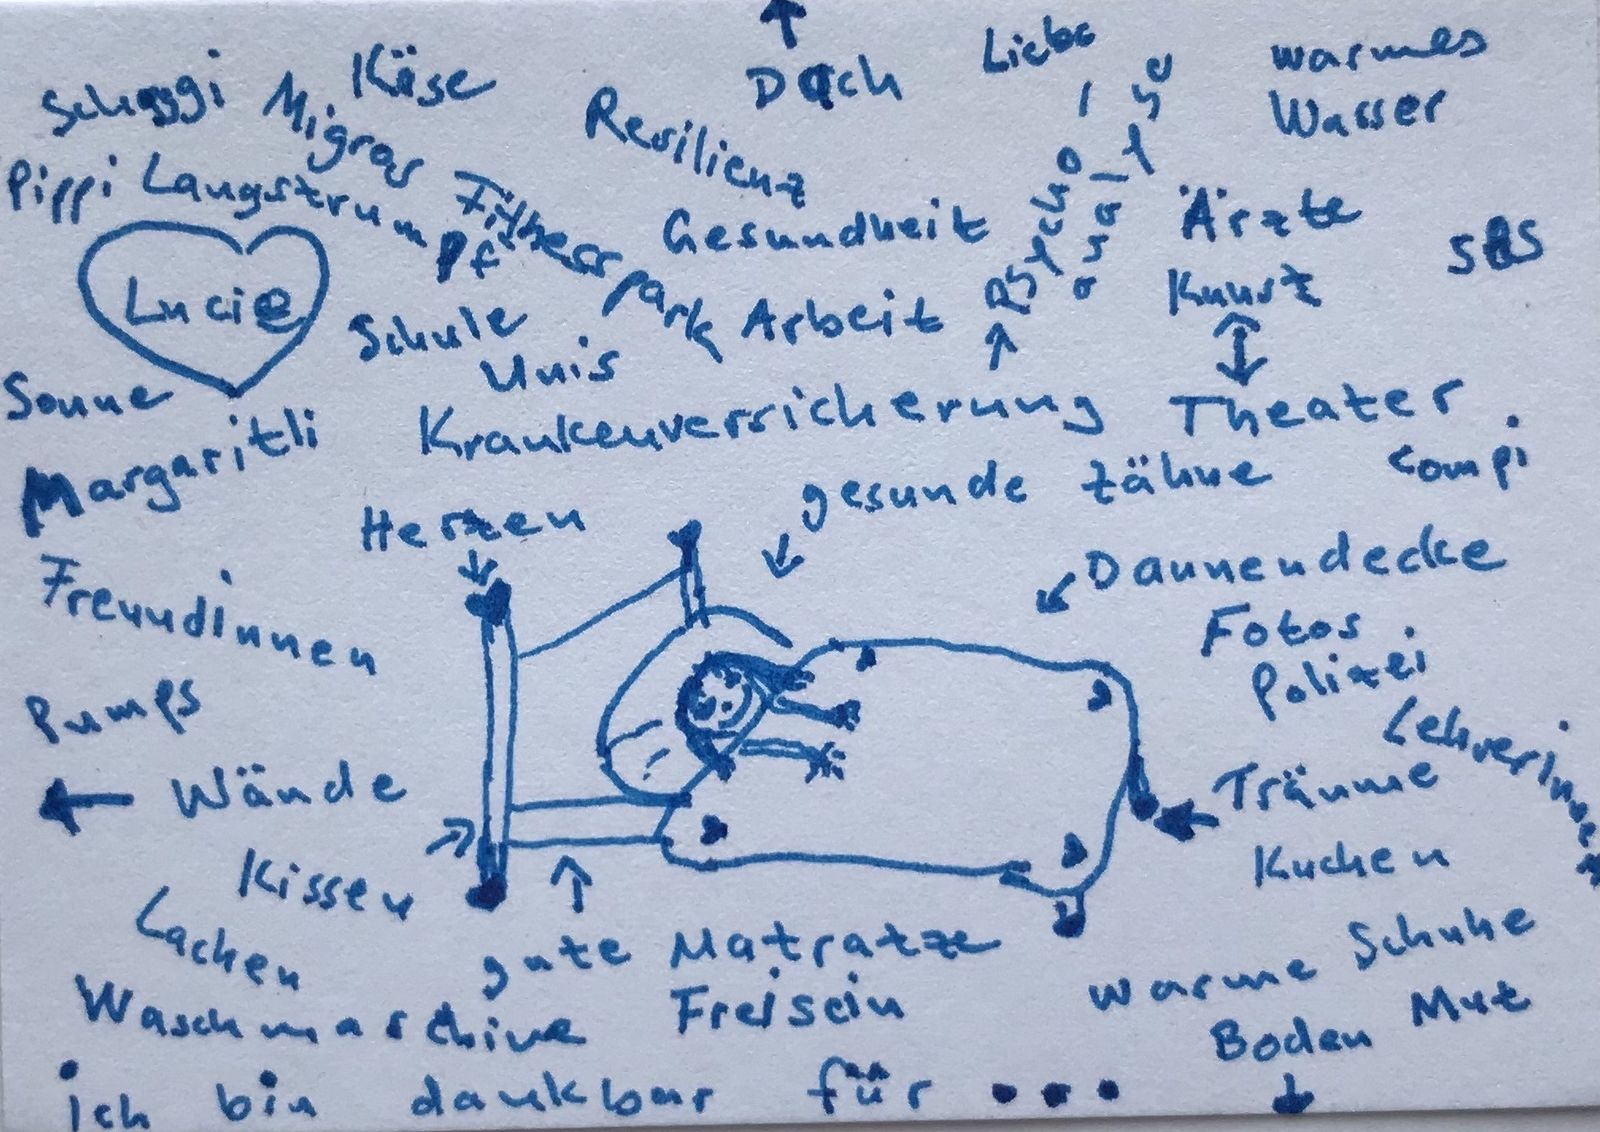 Dach
Liebe
warmes
Wasser
Schoggi
Käse
Migros
Resilienz
Pippi Langstrumpf
Fitnesspark
Gesundheit
Psycho-
analyse
Ärzte
SBS
Kunst
Lucie
Schule
Unis
Arbeit
Sonne
Margaritli
Krankenversicherung
Theater
gesunde Zähne
Compi
Herzen
Daunendecke
Freundinnen
Fotos
Polizei
Pumps
Lehrerinnen
Wände
Träume
Kissen
Kuchen
Lachen
gute Matratze
warme Schuhe
Waschmaschine
Freisein
Mut
Boden
ich bin dankbar für ...